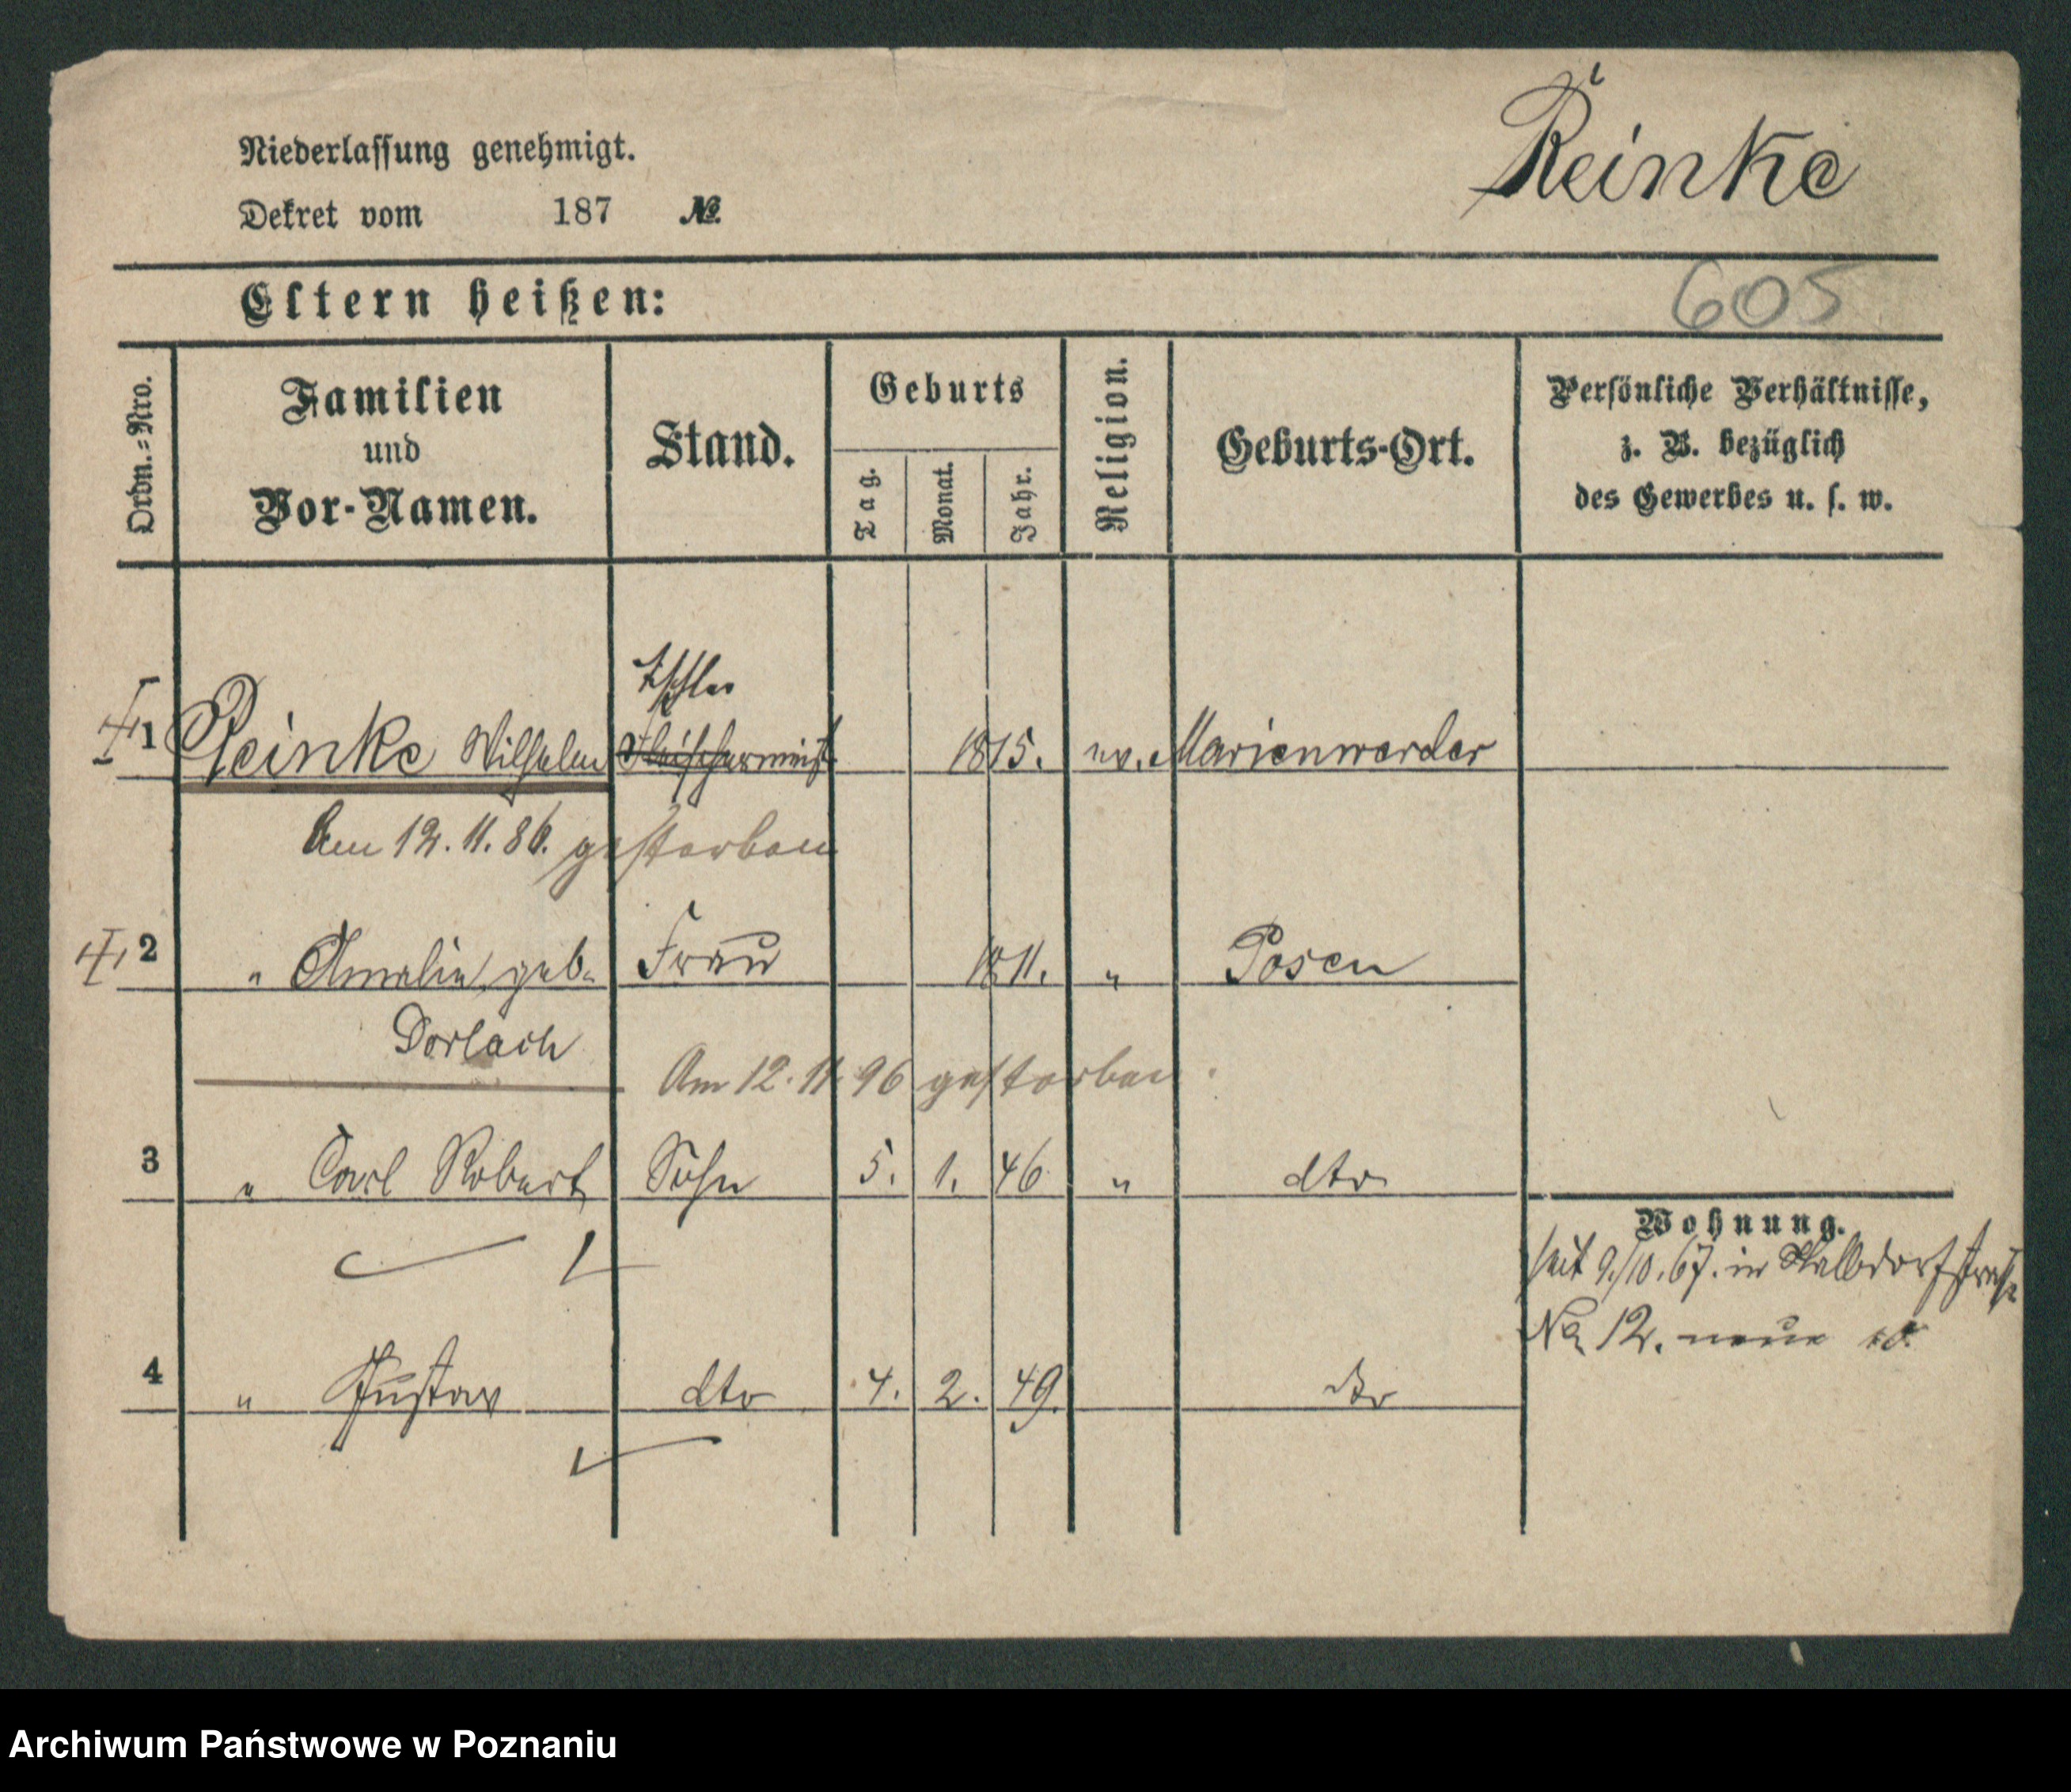 Reinke
Niederlassung genehmigt.
Dekret vom 187 №
605
Eltern heißen:
Ordn.=Nro.
Familien
und
Vor-Namen.
Stand.
Geburts
Tag.
Monat.
Jahr.
Religion.
Geburts-Ort.
Persönliche Verhältnisse,
z. B. bezüglich
des Gewerbes u. s. w.
1 Reinke Wilhelm 1815. ev. Marienwerder
Am 12.11.86. gestorben
2 " Amalie geb. Frau 1811. " Posen
Dorlach
Am 12.11.96 gestorben.
3 " Carl Robert Sohn 5. 1. 46 " dto
Wohnung.
seit 9/10.67. in Halbdorfstraße
No 12.
4 " Gustav dto 4. 2. 49. dto
Archiwum Państwowe w Poznaniu